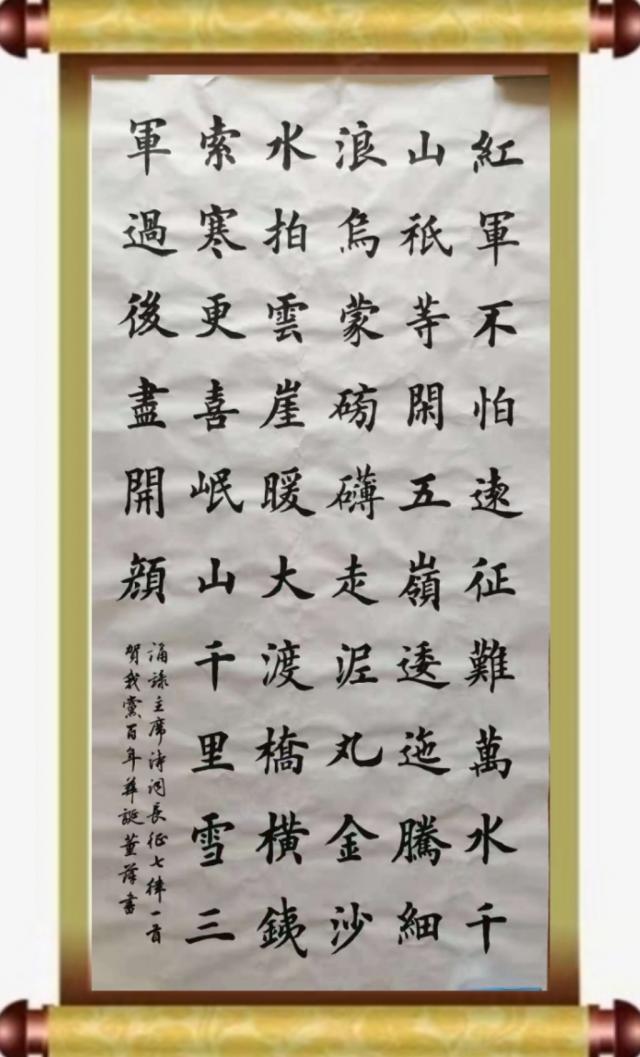 紅軍不怕遠征難萬水千
山祇等閑五嶺逶迤騰細
浪烏蒙磅礴走泥丸金沙
水拍雲崖暖大渡橋橫鐵
索寒更喜岷山千里雪三
軍過後盡開顔
誦錄主席诗词長征七律一首
賀我黨百年華誕董萍書